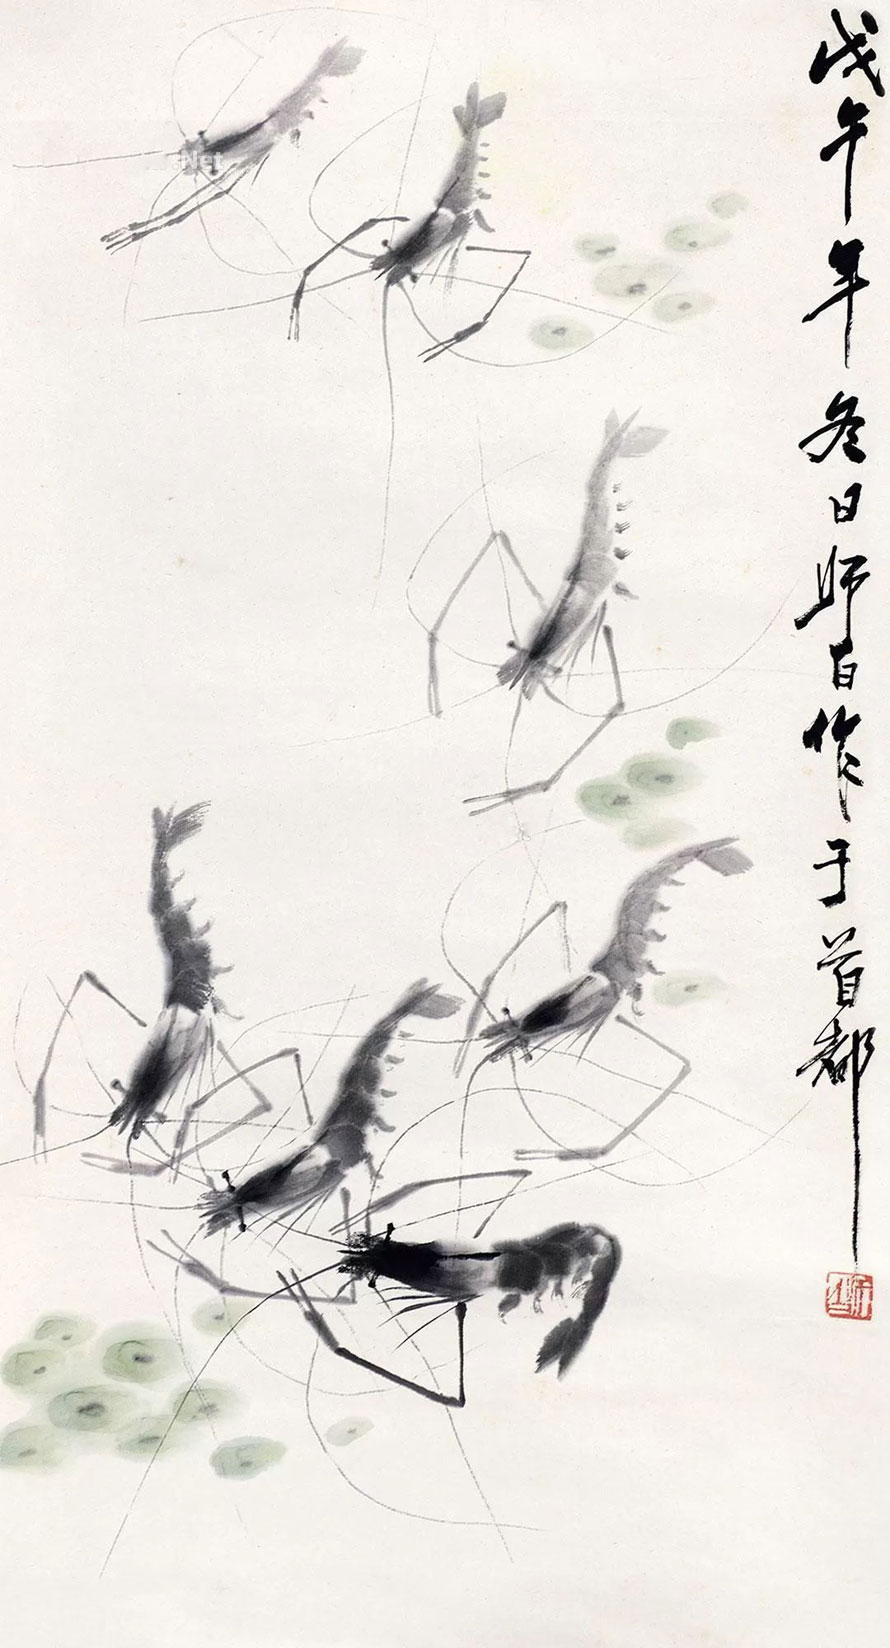 戊午年冬日师白作于首都
Net